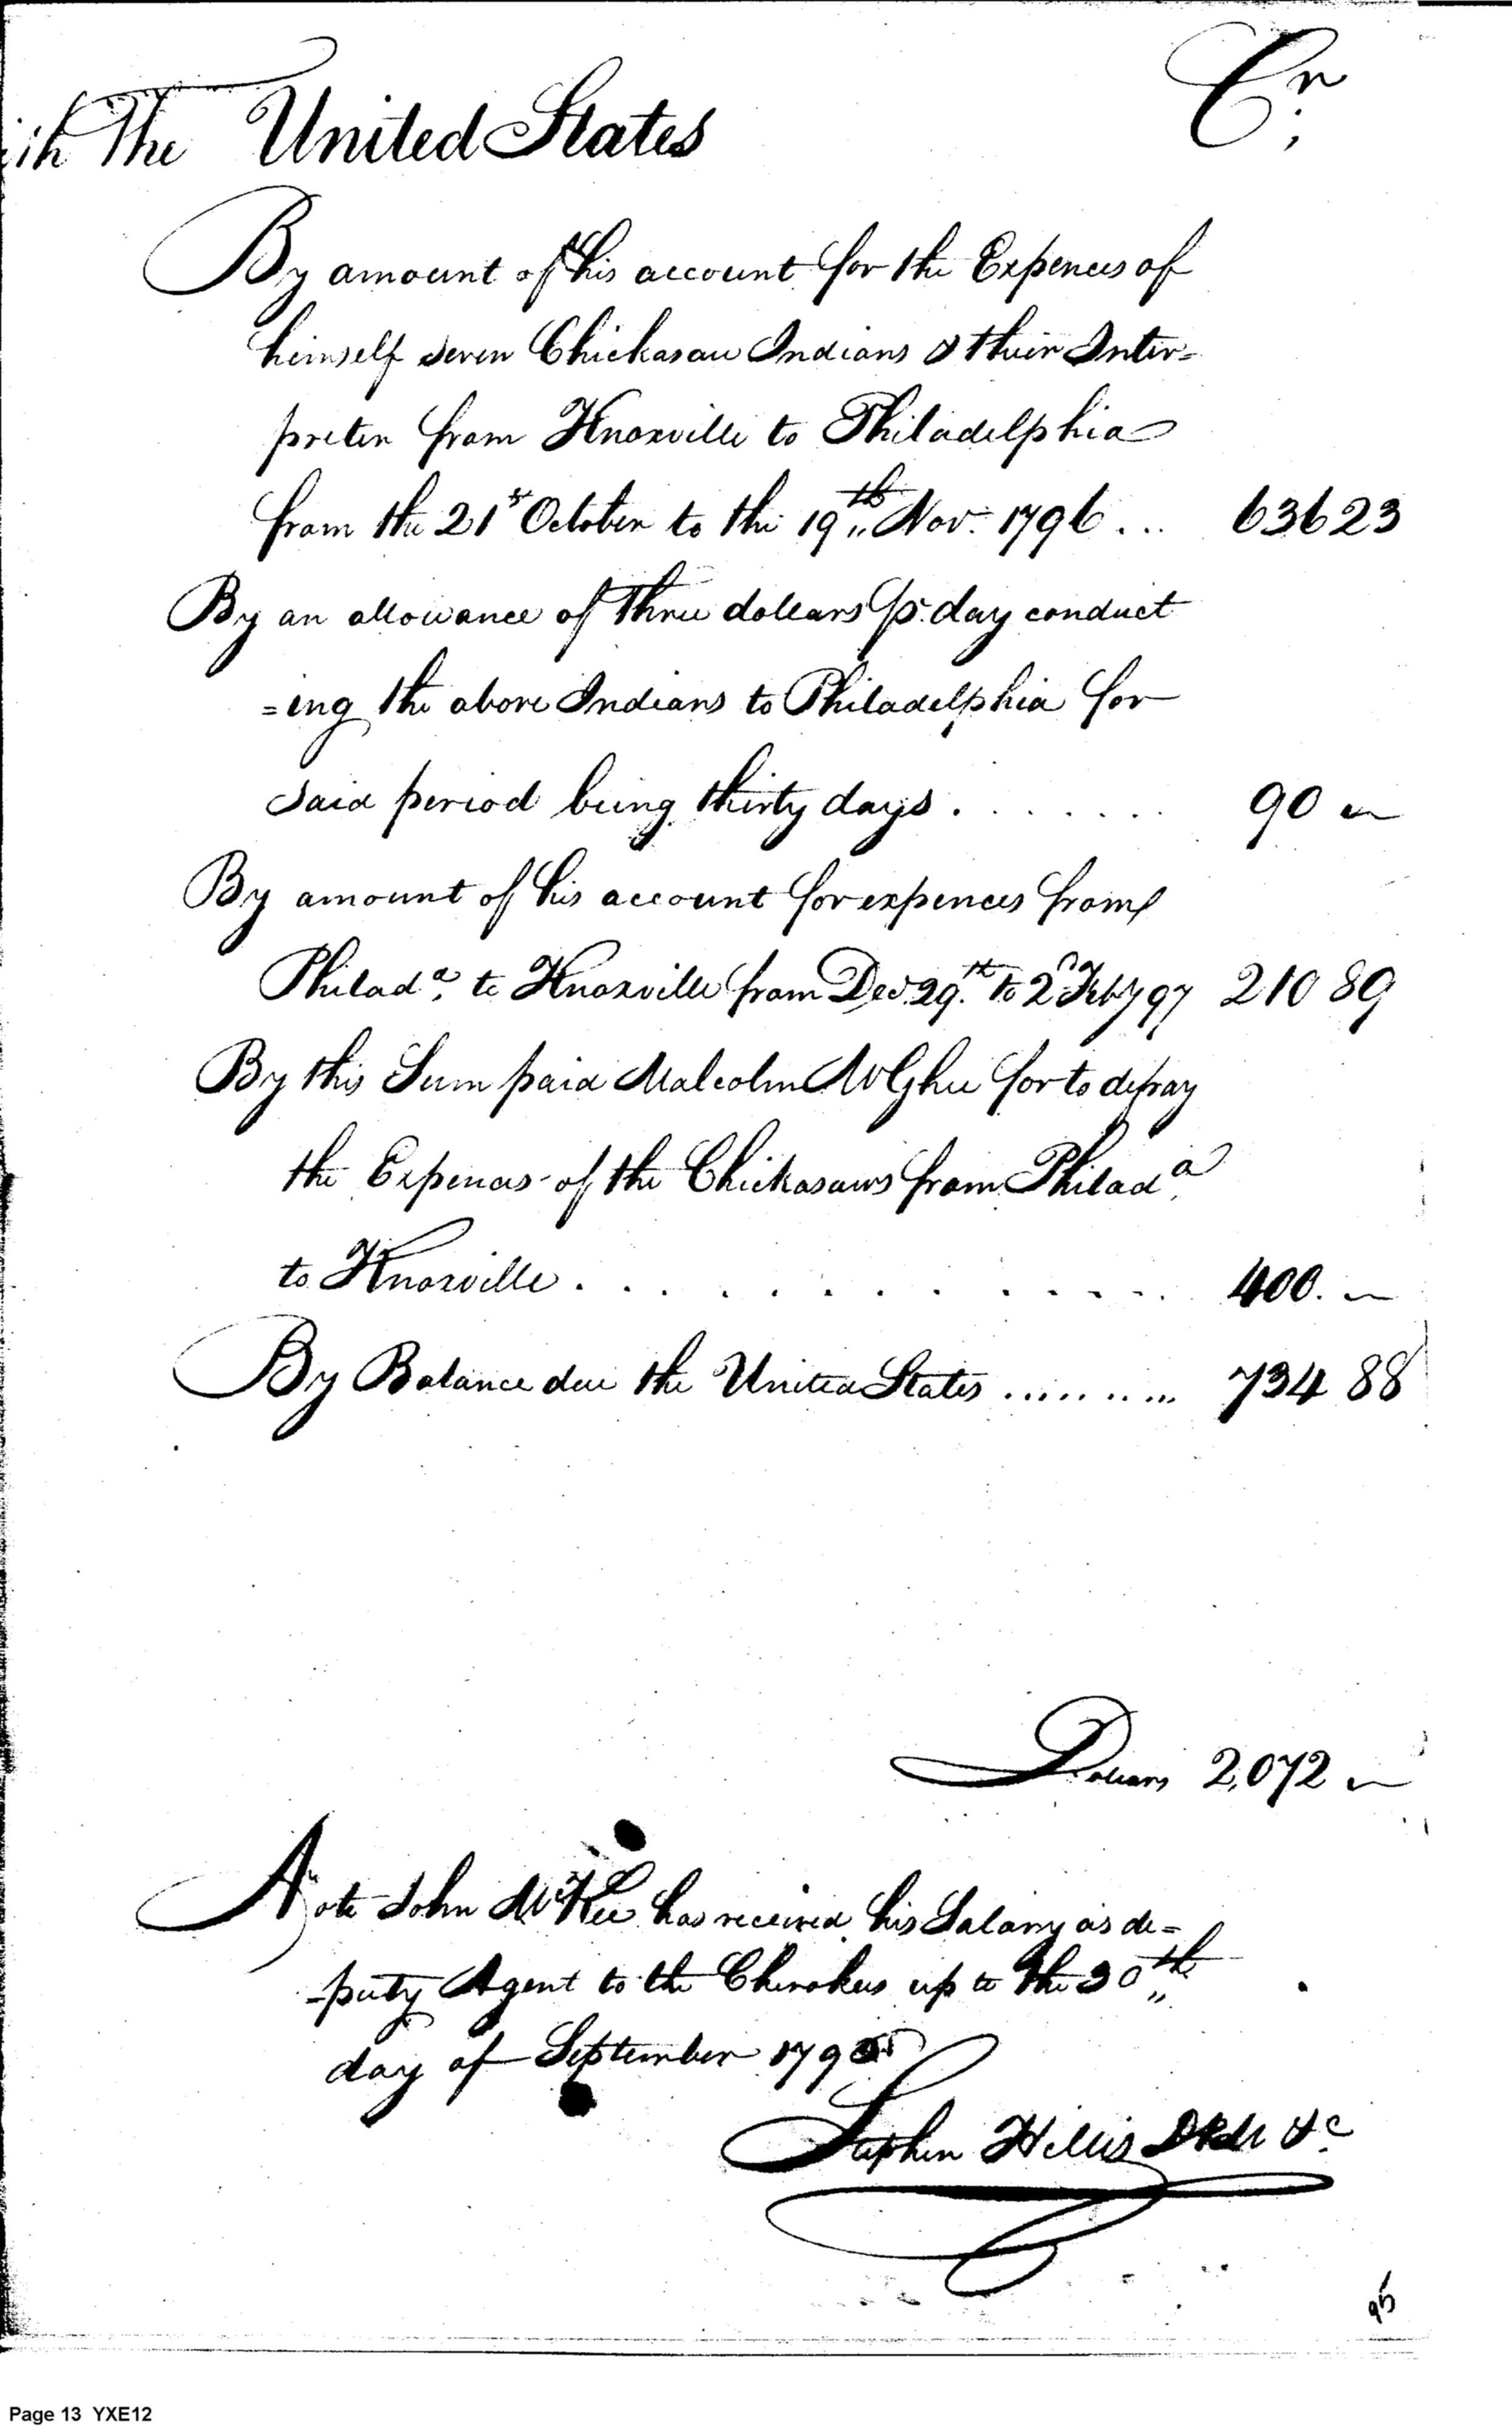 ith The United States Cr,
By amount of his account for the Expences of
himself seven Chickasaw Indians & their Inter=
preter from Knoxville to Philadelphia
from the 21st October to the 19th Nov. 1796 ... 636 23
By an allowance of three dollars p. day conduct
=ing the above Indians to Philadelphia for
said period being thirty days . . . . . . . 90 "
By amount of his account for expences from
Philad.a to Knoxville from Dec 29th to 2d Feby 97 210 89
By this Sum paid Malcolm McGhee for to defray
the Expences of the Chickasaws from Philad.a
to Knoxville . . . . . . . . . . . . . 400. "
By Balance due the United States ......... 734 88
Dollars 2,072 "
Note John McKee has received his Salary as de=
-puty Agent to the Cherokees up to the 30th
day of September 179
Stephen Hillis &c
95
Page 13 YXE12